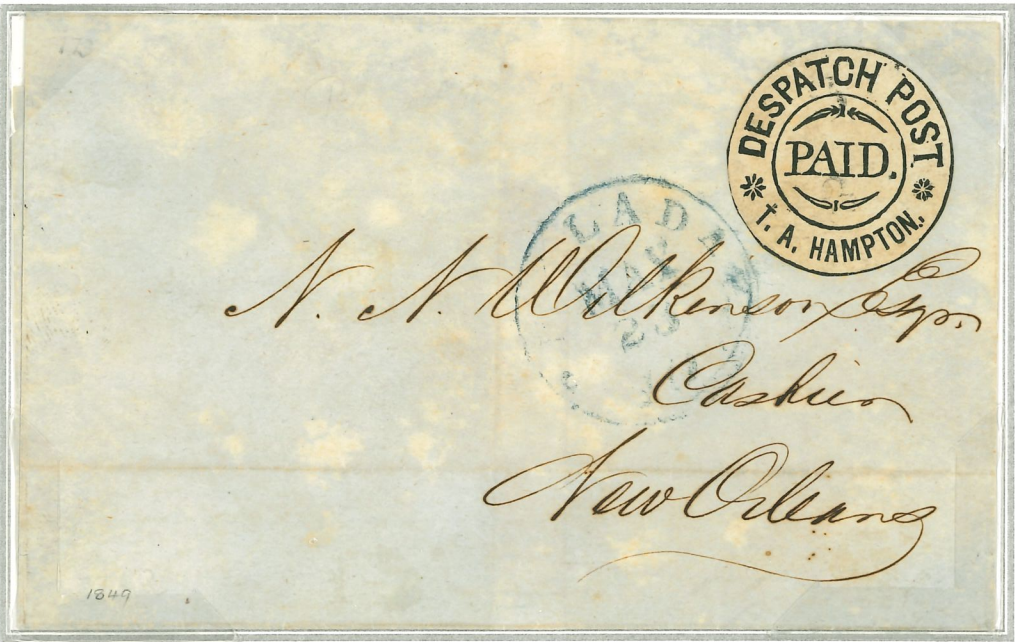 DESPATCH POST
PAID.
T. A. HAMPTON.
LAD
MAY
23
N. N. Wilkinson Esqr.
Cashier
New Orleans
1849